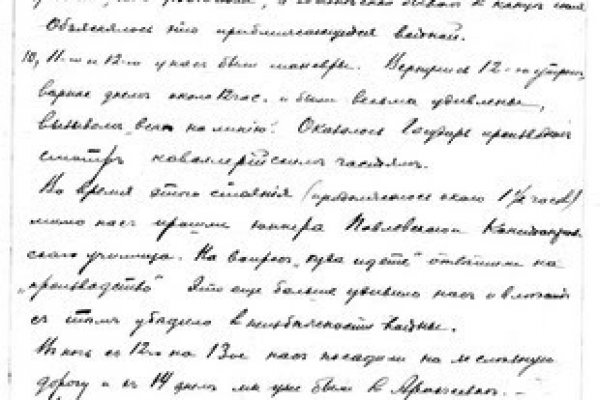 Объяснялось это приближающейся войной.
10, 11-го и 12-го у нас были маневры. Вернулись 12-го утром,
вернее днем около 12 час. и были весьма удивлены,
вызывом „всех на линию“. Оказалось Государь производил
смотр кавалерийским частям.
Во время этого стояния (продолжалось около 1½ часов)
мимо нас прошли юнкера Павловского
училища. На вопрос „куда идете“ отвечали на
„производство“ Это еще больше удивило нас и
с тем убедило в неизбежности войны.
В ночь с 12го на 13ое нас посадили на железную
дорогу и в 14 днем мы уже были в